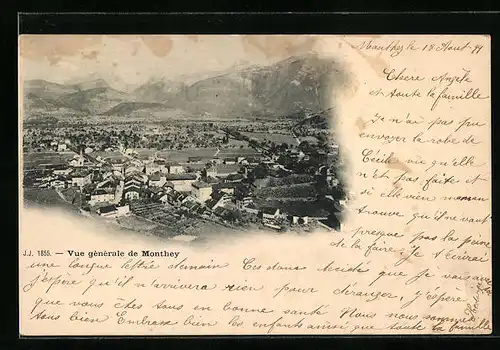 Monthey le 18 Aout 99
Chère Angèle
et toute la famille
Je n'ai pas pu
envoyer la robe de
Cécile vu qu'elle
n'est pas faite et
si elle vien
trouve qu'il ne vaut
presque pas la peine
de la faire Je t'écrirai
J.J. 1855. — Vue générale de Monthey
une longue lettre demain
que et n'arrivera rien pour déranger, j'espère
que vous êtes tous en bonne santé Nous nous sommes
tous bien Embrasse bien les enfants ainsi que toute la famille